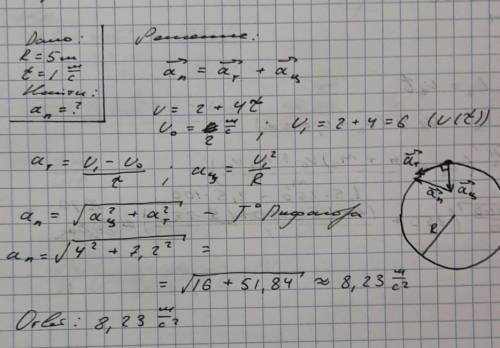 Дано:
R = 5м
t = 1 м/с
Найти:
aп = ?
Решение:
aп = aт + aц
υ = 2 + 4t
υ₀ = 2 м/с ; υ₁ = 2 + 4 = 6 (υ(t))
aт = (υ₁ - υ₀)/t ; aц = υ₁²/R
aп = √(aц² + aт²) - Т° Пифагора
aп = √(4² + 7,2²) =
= √(16 + 51,84) ≈ 8,23 м/с²
Ответ: 8,23 м/с²
aт
aп
aц
R